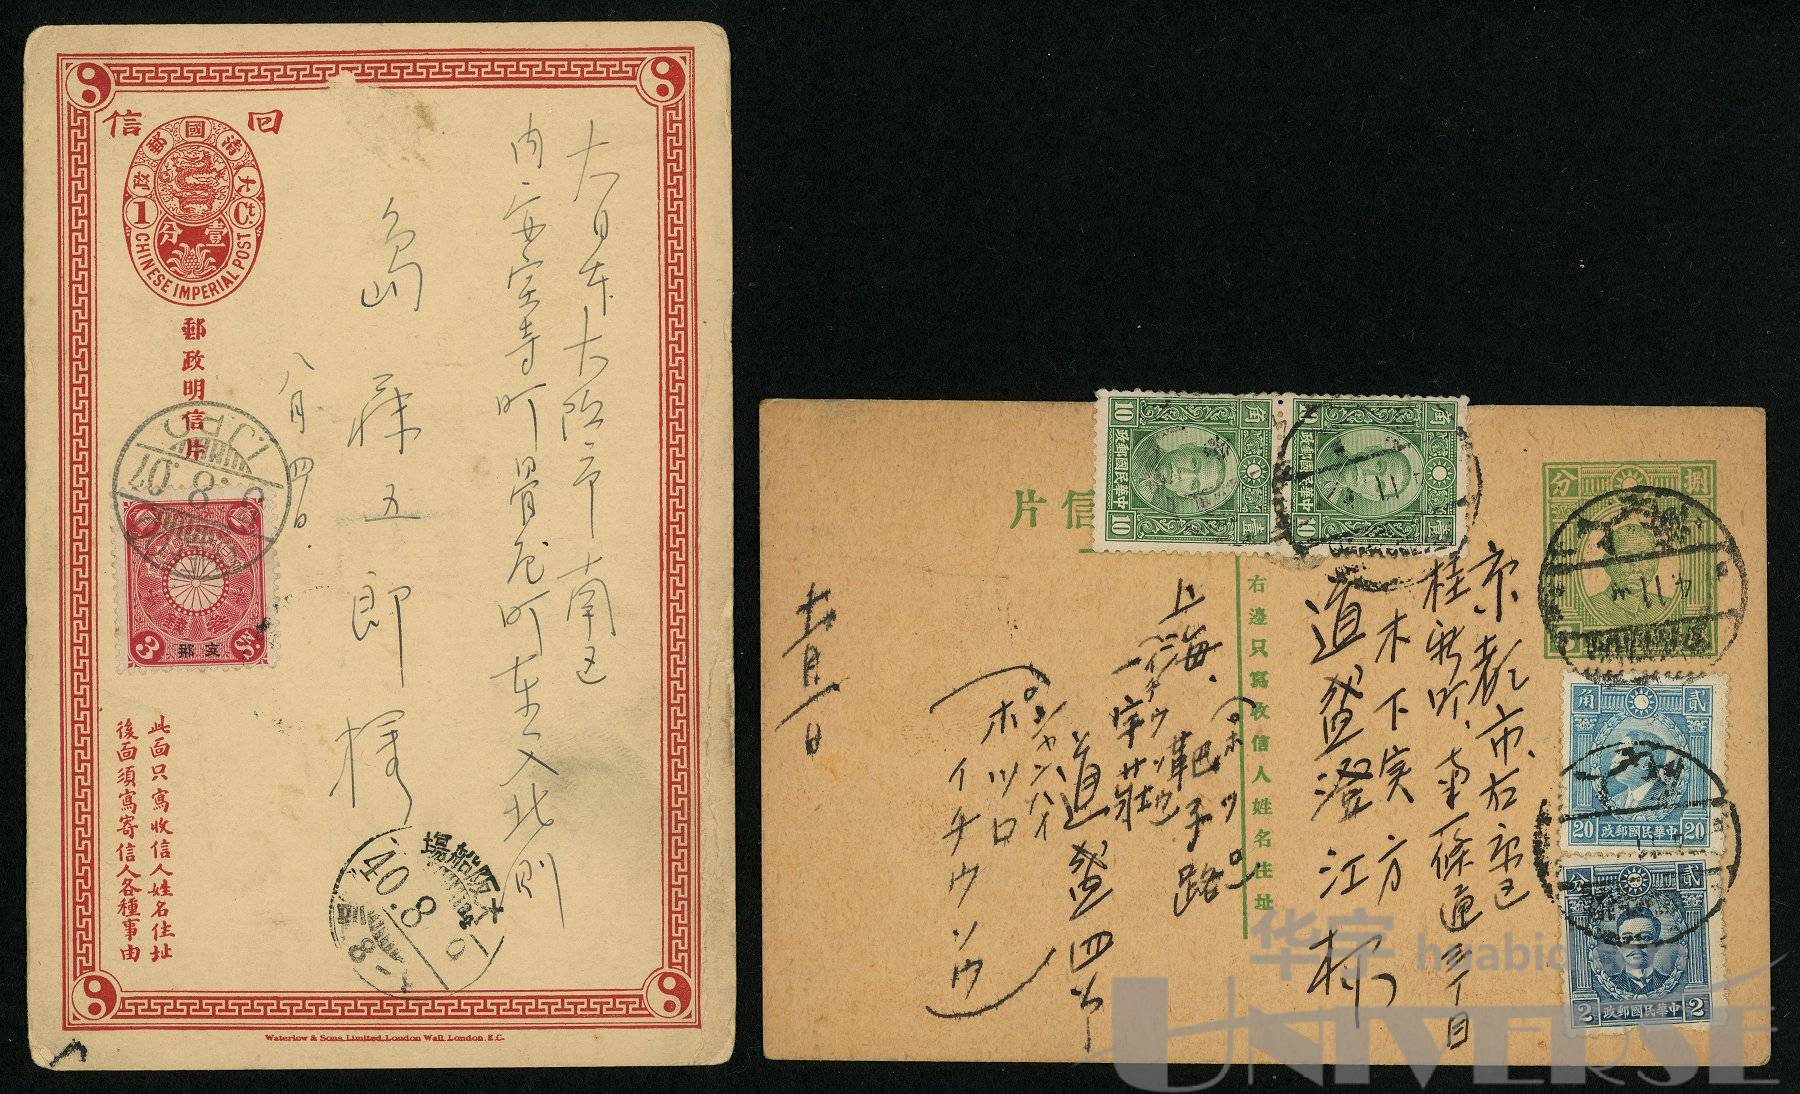 回信
大清國郵政
1 C.
壹分
CHINESE IMPERIAL POST
郵政明信片
大日本大阪市南区
内安堂寺町骨屋町東へ入北側
島藤五郎様
八月四日
I.J.P.O
8.07
3 Sn.
支那
大阪船場
40.8.
此面只寫收信人姓名住址
後面須寫寄信人各種事由
Waterlow & Sons, Limited, London Wall, London, E.C.
信片
角壹
10 中華民國郵政 10
角壹
10 中華民國郵政 10
分捌
角貳
20 中華民國郵政 20
分貳
2 中華民國郵政 2
右邊只寫收信人姓名住址
京都市右京区
桂新町、南一條通三丁目
木下実方
道盤澄江様
上海、靶子路
一宇荘
道盤四郎
シャンハイ
ホツロ
イチウソウ
十一月一日
华宇
UNIVERSE